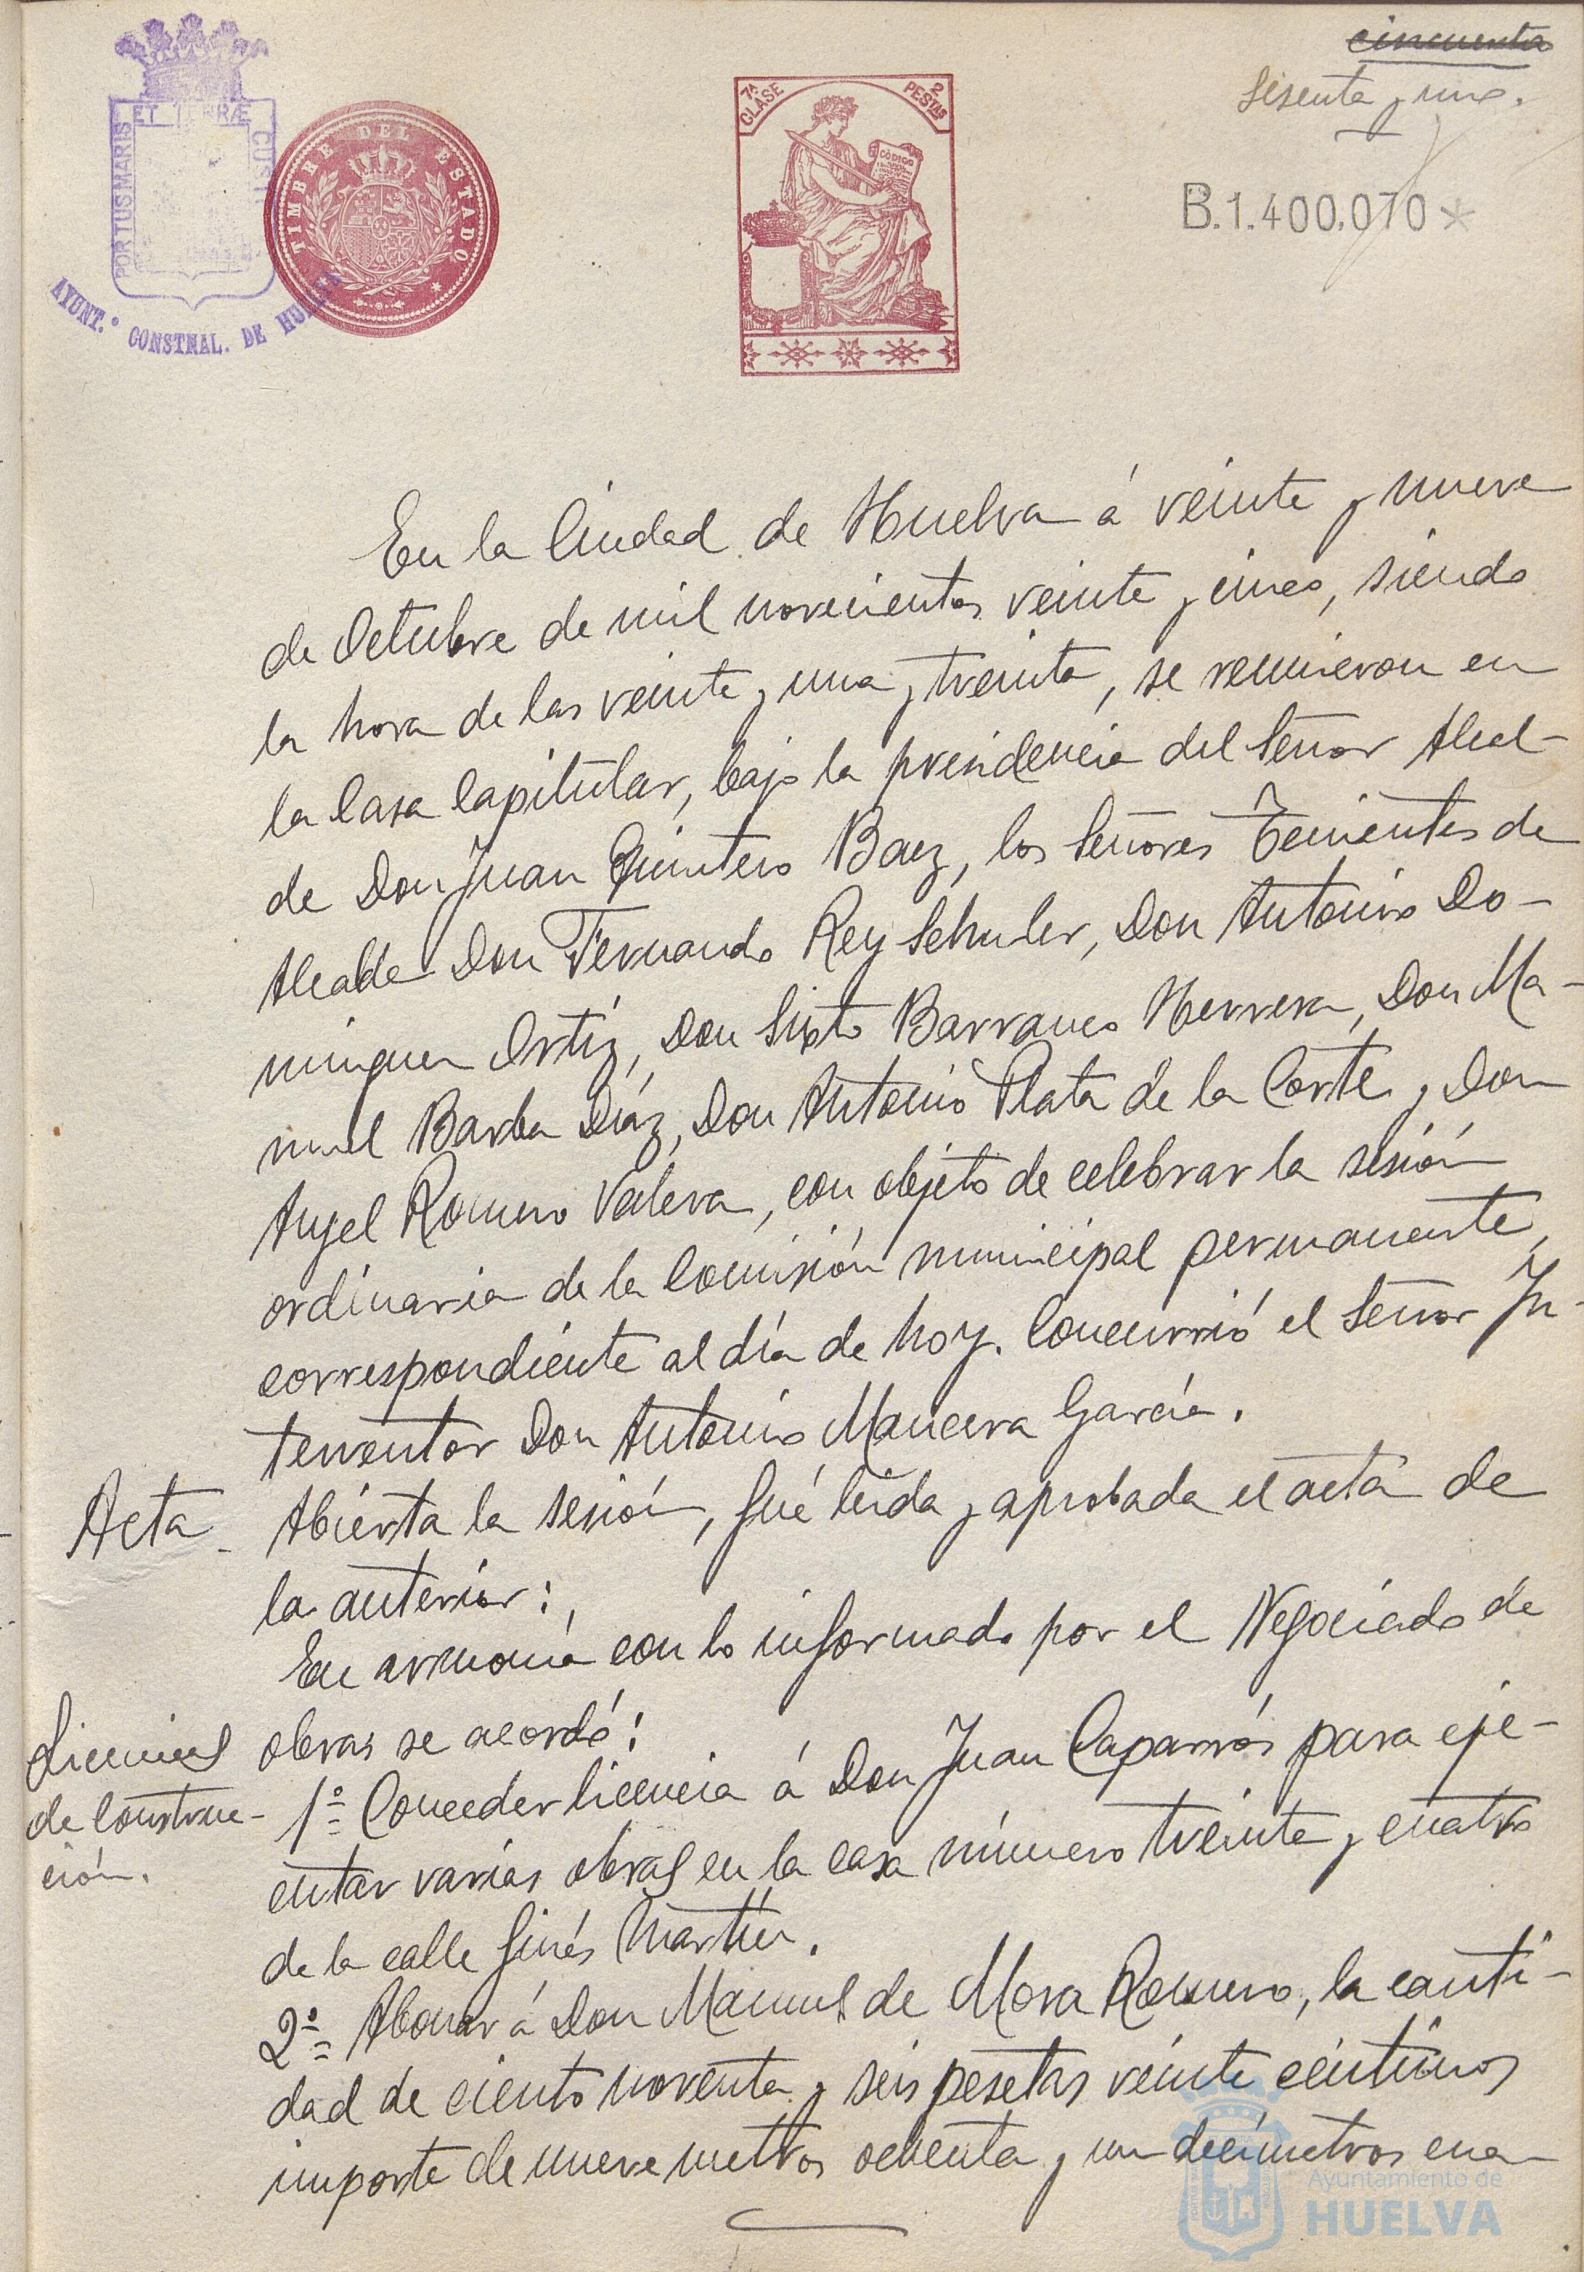 cincuenta
Sesenta y uno.
PORTUS MARIS ET TERRÆ CUST
AYUNT.º CONSTNAL. DE HUELVA
TIMBRE DEL ESTADO
7ª CLASE
2 PESTAS
CÓDIGO
B.1.400.070*
En la Ciudad de Huelva á veinte y nueve
de Octubre de mil novecientos veinte y cinco, siendo
la hora de las veinte y una y treinta, se reunieron en
la Casa Capitular, bajo la presidencia del Señor Alcal-
de Don Juan Quintero Baez, los Señores Tenientes de
Alcalde Don Fernando Rey Schuler, Don Antonio Do-
minguez Ortíz, Don Sixto Barranco Herrera, Don Ma-
nuel Barba Díaz, Don Antonio Plata de la Corte y Don
Angel Romero Valera, con objeto de celebrar la sesión
ordinaria de la Comisión municipal permanente,
correspondiente al día de hoy. Concurrió el Señor In-
terventor Don Antonio Mancera García.
Acta.
Abierta la sesión, fué leida y aprobada el acta de
la anterior:,
En armonía con lo informado por el Negociado de
obras se acordó:
Licencias
de construc-
ción.
1º Conceder licencia á Don Juan Caparrós para eje-
cutar varias obras en la casa número treinta y cuatro
de la calle Ginés Martín.
2º Abonar á Don Manuel de Mora Romero, la canti-
dad de ciento noventa y seis pesetas veinte céntimos
importe de nueve metros ochenta y un decímetros cua
Ayuntamiento de
HUELVA